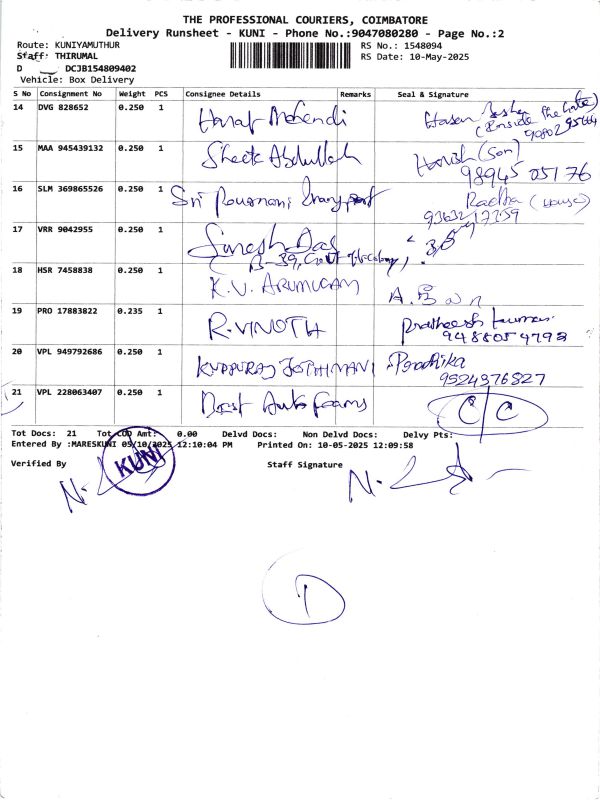 THE PROFESSIONAL COURIERS, COIMBATORE
Delivery Runsheet - KUNI - Phone No.:9047080280 - Page No.:2
Route: KUNIYAMUTHUR RS No.: 1548094
Staff: THIRUMAL RS Date: 10-May-2025
D DCJB154809402
Vehicle: Box Delivery
S No Consignment No Weight PCS Consignee Details Remarks Seal & Signature
14 DVG 828652 0.250 1 Mehendi
(Inside The Gate)
15 MAA 945439132 0.250 1 Abdullah Harish (Son)
98945 05176
16 SLM 369865526 0.250 1 Sri Radha (House)
17 VRR 9042955 0.250 1 Suresh Das
18 HSR 7458838 0.250 1 K.V. ARUMUGAM
19 PRO 17883822 0.235 1 R.VINOTH
9488054798
20 VPL 949792686 0.250 1 KUPPURAJ JOTHIMANI
9524376827
21 VPL 228063407 0.250 1 Best Auto Foams C/C
Tot Docs: 21 Tot COD Amt: 0.00 Delvd Docs: Non Delvd Docs: Delvy Pts:
Entered By :MARESKUNI 05/10/2025 12:10:04 PM Printed On: 10-05-2025 12:09:58
Verified By Staff Signature
KUNI
D